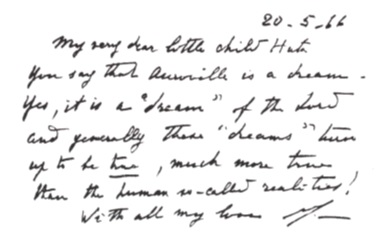 20-5-66
My very dear little child Huta
You say that Auroville is a dream.
Yes, it is a "dream" of the Lord
and generally these "dreams" turn
up to be true, much more true
than the human so-called realities!
With all my love